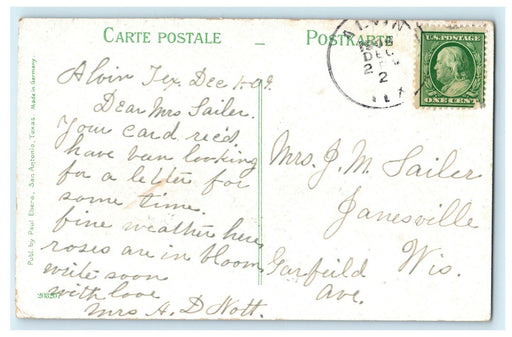 CARTE POSTALE – POSTKARTE
Alvin Tex. Dec 1-09.
Dear Mrs Sailer.
Your card rec'd.
have been looking
for a letter for
some time.
fine weather here
roses are in bloom
write soon
with love
Mrs A. D Nott.
Mrs. J. M. Sailer
Janesville
Garfield Wis.
Ave.
ALVIN
DEC
2
TEX
U.S. POSTAGE
ONE CENT
Publ. by Paul Ebers, San Antonio, Texas. Made in Germany.